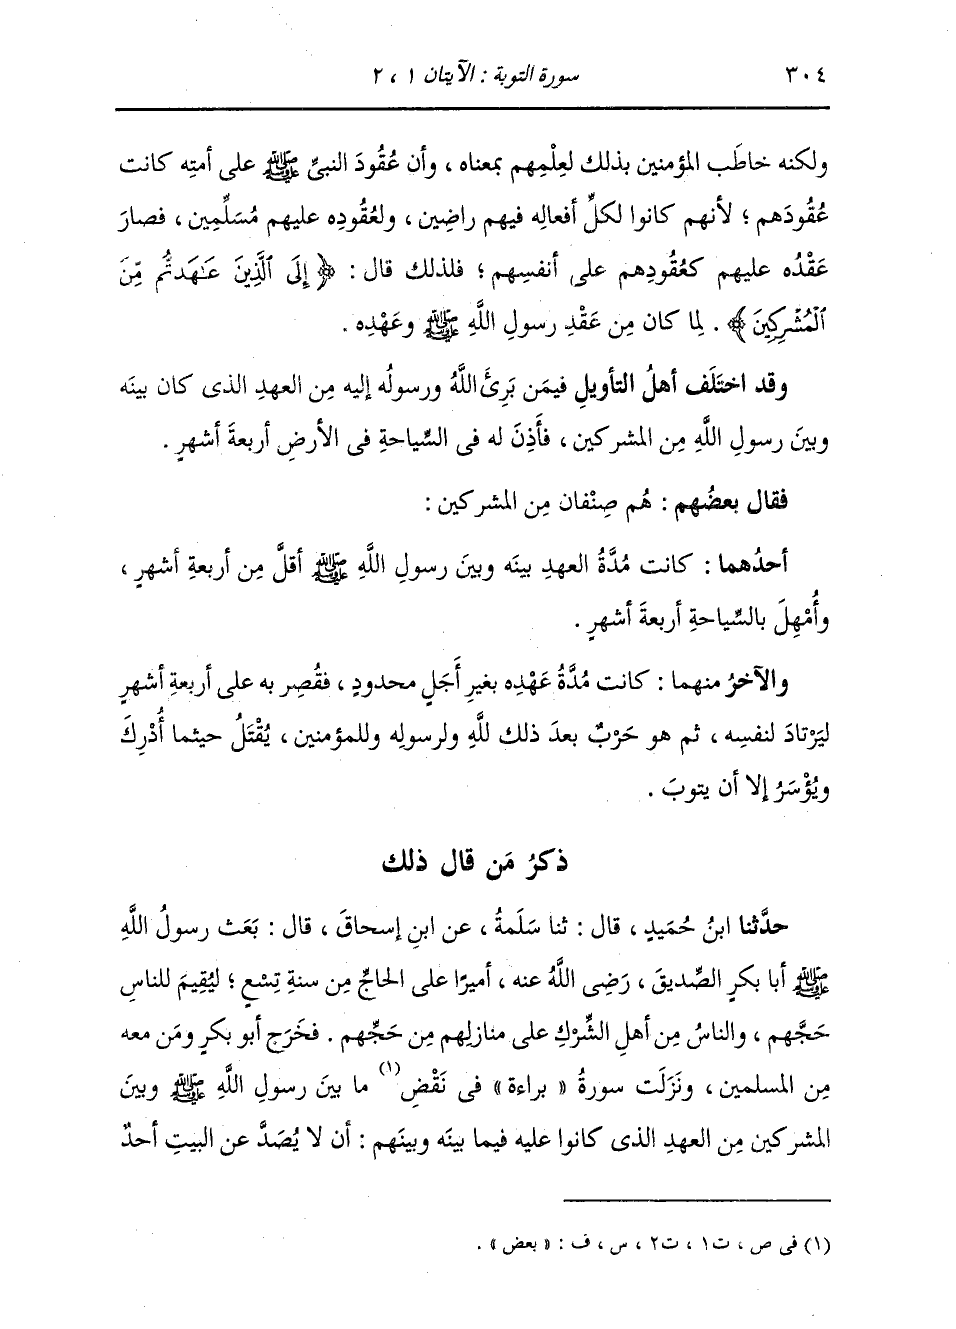 ٣٠٤ سورة التوبة : الآيتان ١ ، ٢
ولكنه خاطَب المؤمنين بذلك لعِلْمِهم بمعناه ، وأن عُقُودَ النبىِّ ﷺ على أمتِه كانت
عُقُودَهم ؛ لأنهم كانوا لكلِّ أفعالِه فيهم راضِين ، ولعُقُودِه عليهم مُسَلِّمِين ، فصارَ
عَقْدُه عليهم كعُقُودِهم على أنفسِهم ؛ فلذلك قال : ﴿ إِلَى ٱلَّذِينَ عَٰهَدتُّم مِّنَ
ٱلْمُشْرِكِينَ ﴾ . لِما كان مِن عَقْدِ رسولِ اللَّهِ ﷺ وعَهْدِه .
وقد اختَلَف أهلُ التأويلِ فيمَن بَرِئَ اللَّهُ ورسولُه إليه مِن العهدِ الذى كان بينَه
وبينَ رسولِ اللَّهِ مِن المشركين ، فأَذِنَ له فى السِّياحةِ فى الأرضِ أربعةَ أشهرٍ .
فقال بعضُهم : هُم صِنْفان مِن المشركين :
أحدُهما : كانت مُدَّةُ العهدِ بينَه وبينَ رسولِ اللَّهِ ﷺ أقلَّ مِن أربعةِ أشهرٍ ،
وأُمْهِلَ بالسِّياحةِ أربعةَ أشهرٍ .
والآخرُ منهما : كانت مُدَّةُ عَهْدِه بغيرِ أَجَلٍ محدودٍ ، فقُصِر به على أربعةِ أشهرٍ
ليَرْتادَ لنفسِه ، ثم هو حَرْبٌ بعدَ ذلك للَّهِ ولرسولِه وللمؤمنين ، يُقْتَلُ حيثما أُدْرِكَ
ويُؤْسَرُ إلا أن يتوبَ .
ذكرُ مَن قال ذلك
حدَّثنا ابنُ حُمَيدٍ ، قال : ثنا سَلَمةُ ، عن ابنِ إسحاقَ ، قال : بَعَث رسولُ اللَّهِ
ﷺ أبا بكرٍ الصِّديقَ ، رَضِى اللَّهُ عنه ، أميرًا على الحاجِّ مِن سنةِ تِسْعٍ ؛ ليُقِيمَ للناسِ
حَجَّهم ، والناسُ مِن أهلِ الشِّرْكِ على منازلِهم مِن حَجِّهم . فخَرَج أبو بكرٍ ومَن معه
مِن المسلمين ، ونَزَلَت سورةُ « براءة » فى نَقْضِ(١) ما بينَ رسولِ اللَّهِ ﷺ وبينَ
المشركين مِن العهدِ الذى كانوا عليه فيما بينَه وبينَهم : أن لا يُصَدَّ عن البيتِ أحدٌ
(١) فى ص ، ت١ ، ت٢ ، س ، ف : « بعض » .